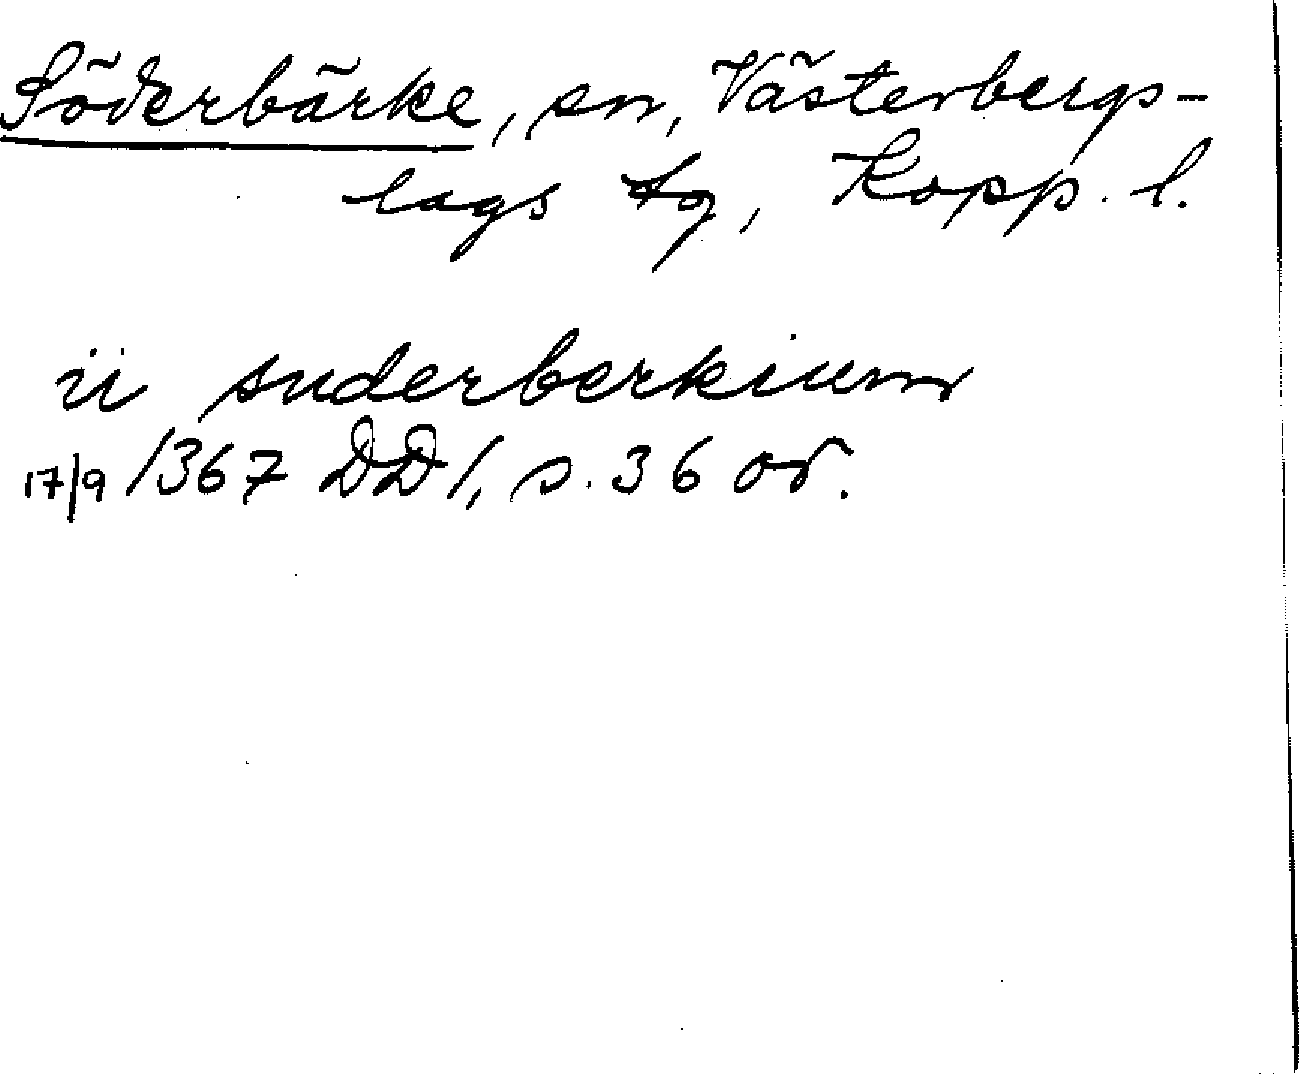 Söderbärke, sn, Västerbergs-
lags tg, Kopp. l.
ii suderberkium
17/9 1367 DD 1, s. 36 or.